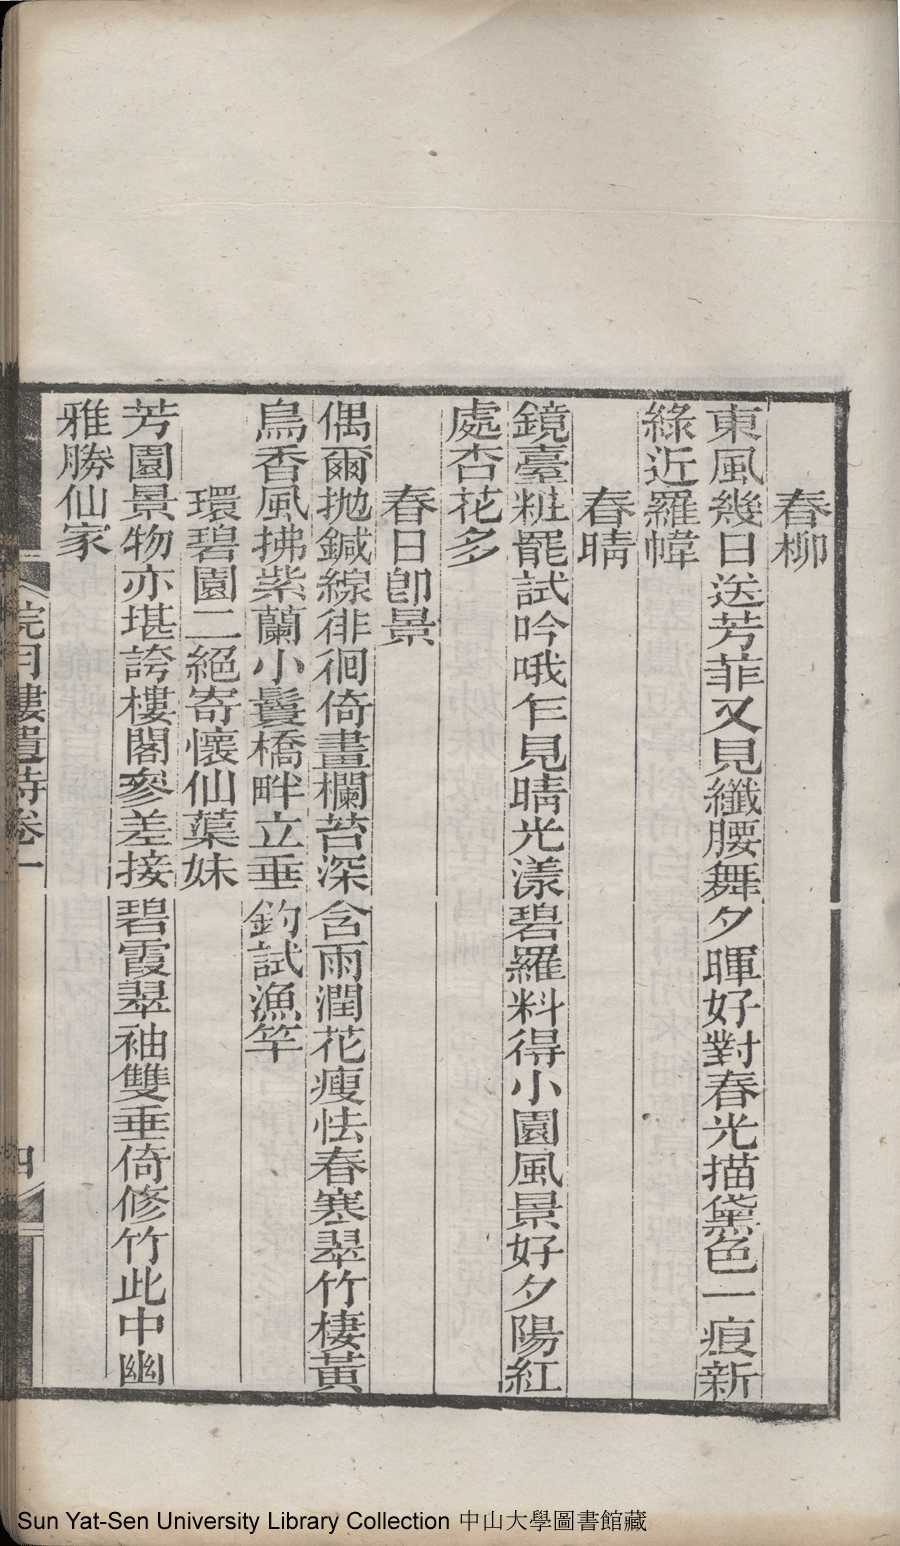 春柳
東風幾日送芳菲又見纖腰舞夕暉好對春光描黛色一痕新
綠近羅幃
春晴
鏡臺粧罷試吟哦乍見晴光漾碧羅料得小園風景好夕陽紅
處杏花多
春日卽景
偶爾抛鍼線徘徊倚畫欄苔深含雨潤花瘦怯春寒翠竹棲黃
鳥香風拂紫蘭小鬟橋畔立垂釣試漁竿
環碧園二絕寄懷仙蕖妹
芳園景物亦堪誇樓閣參差接碧霞翠袖雙垂倚修竹此中幽
雅勝仙家
浣月樓遺詩卷一
四
Sun Yat-Sen University Library Collection 中山大學圖書館藏